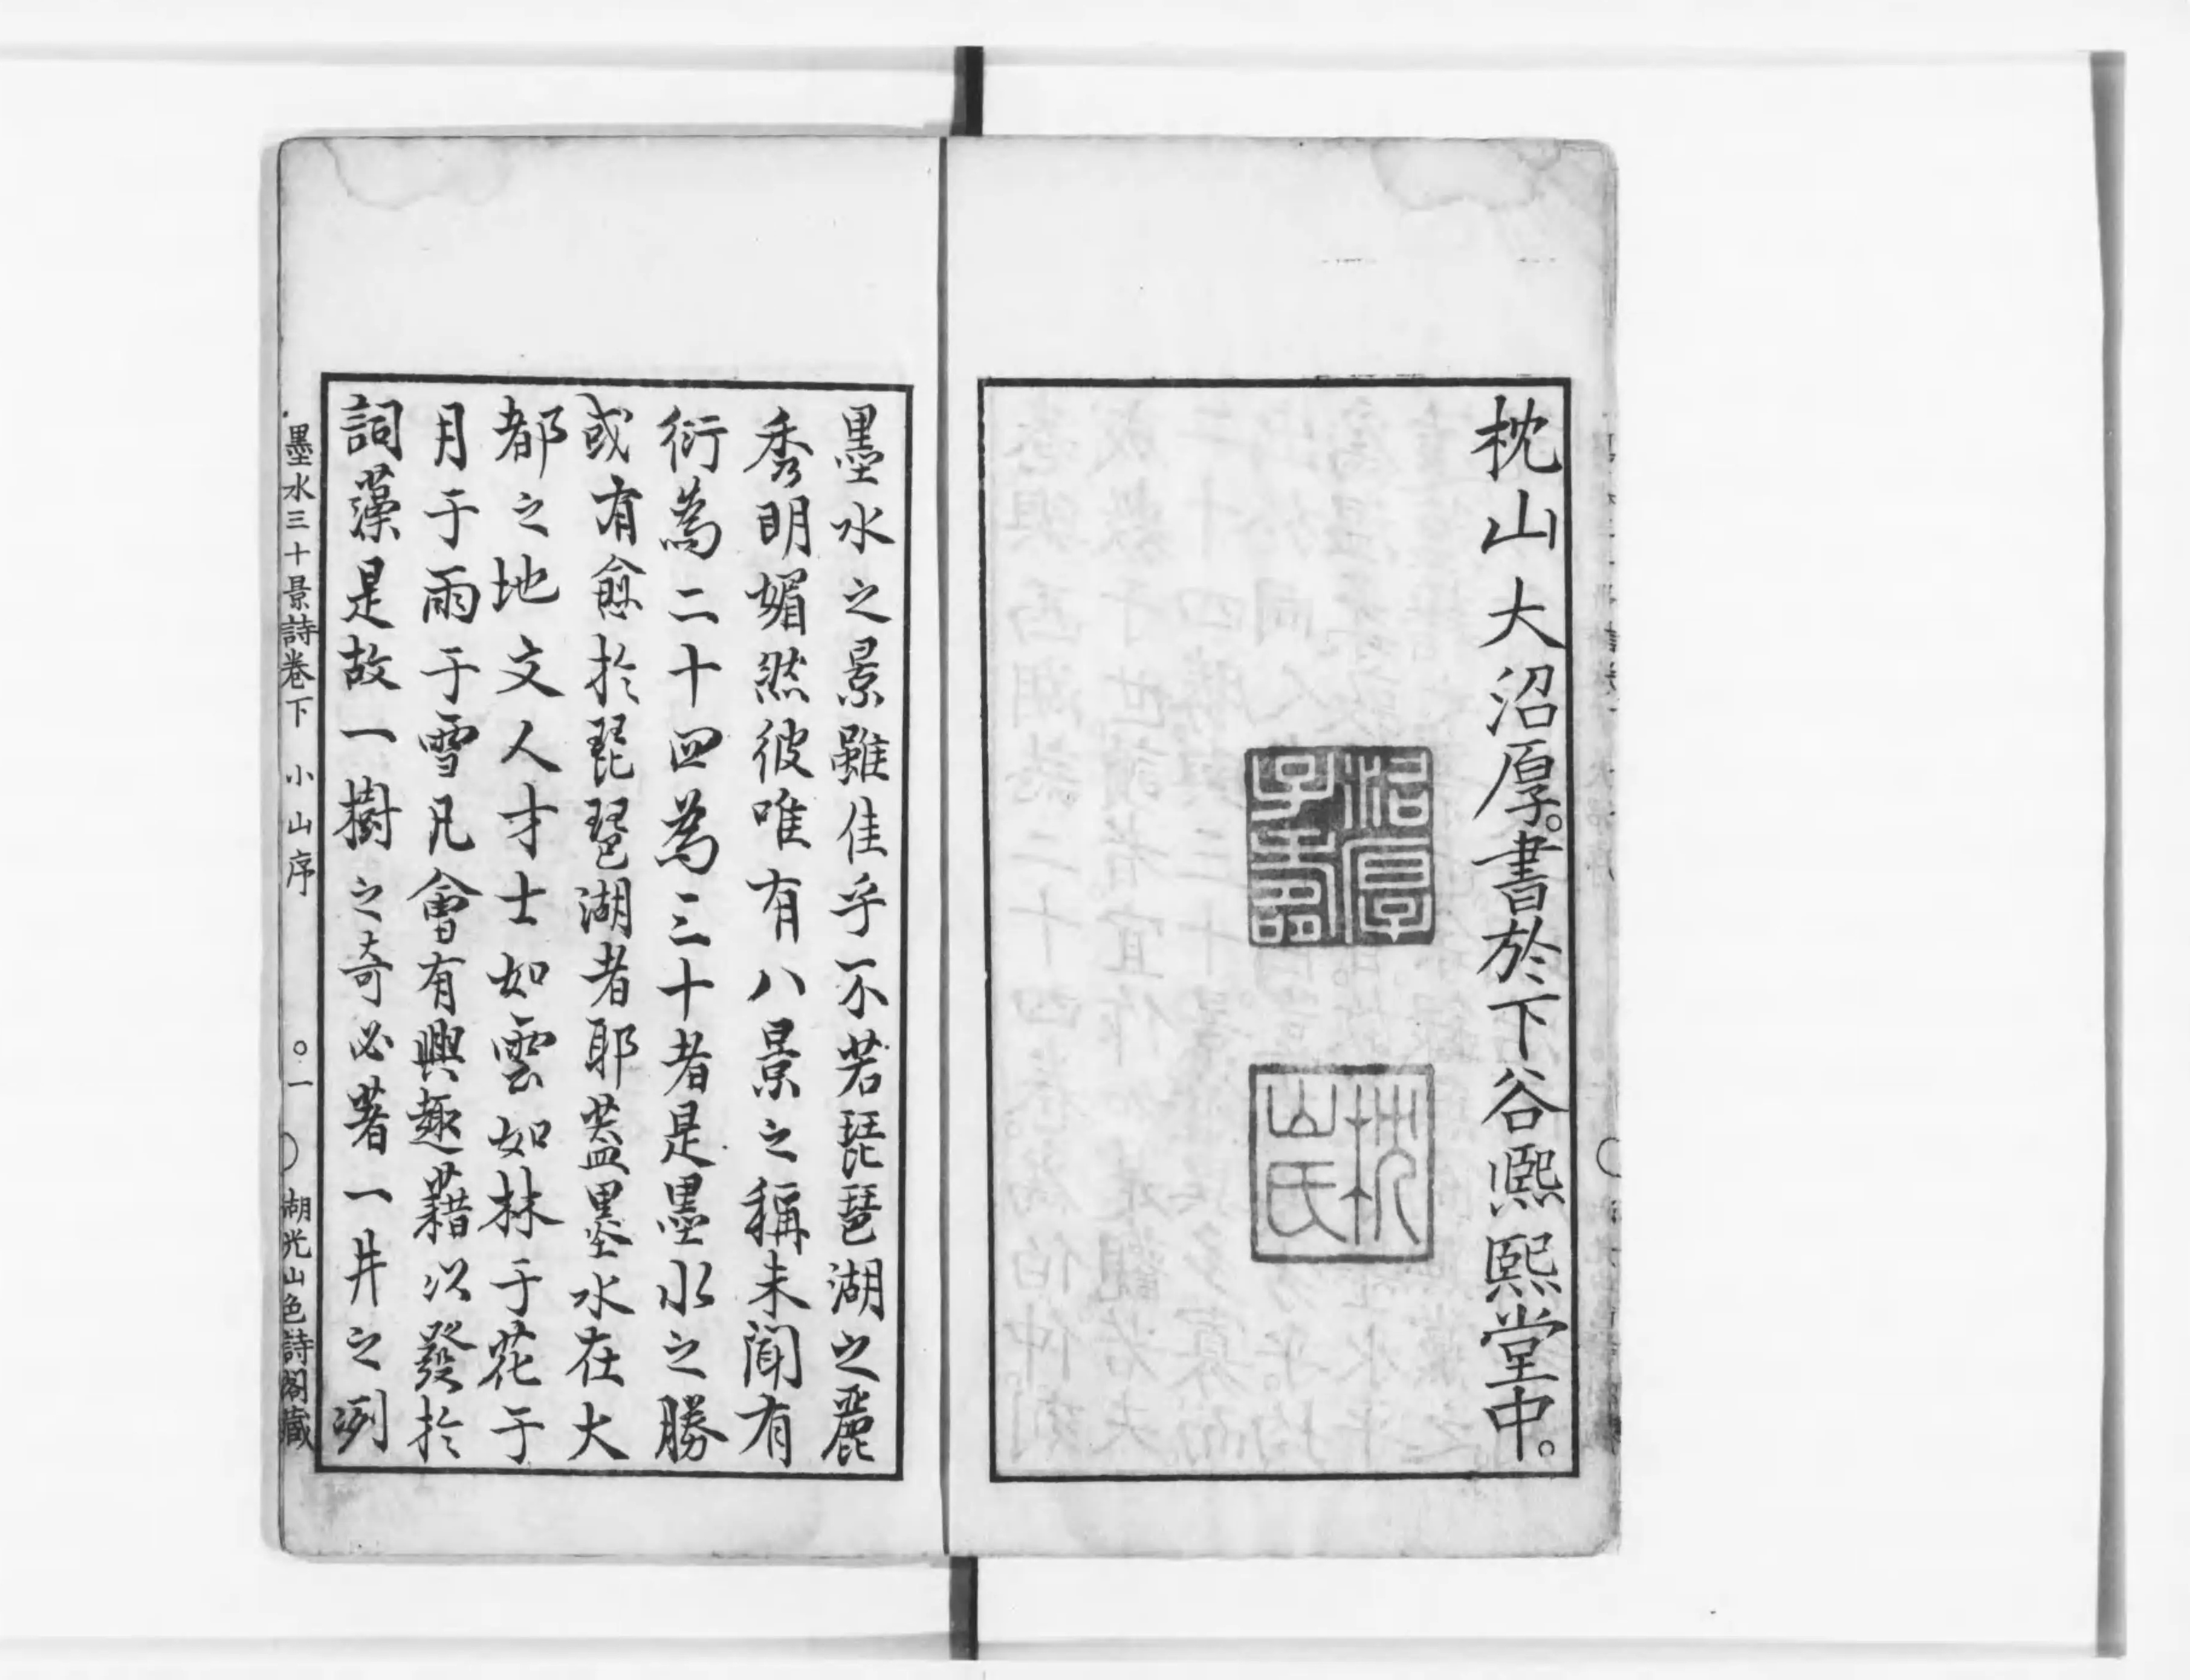 枕山大沼厚。書於下谷熈熙堂中。
沼厚
子壽
枕
山氏
墨水之景雖佳乎不若琵琶湖之麗
秀明媚然彼唯有八景之稱未聞有
衍為二十四為三十者是墨水之勝
或有愈於琵琶湖者耶葢墨水在大
都之地文人才士如雲如林于花于
月于雨于雪凡會有興趣藉以發於
詞藻是故一樹之奇必著一井之冽
墨水三十景詩卷下 小山序 〇一 湖光山色詩閣藏